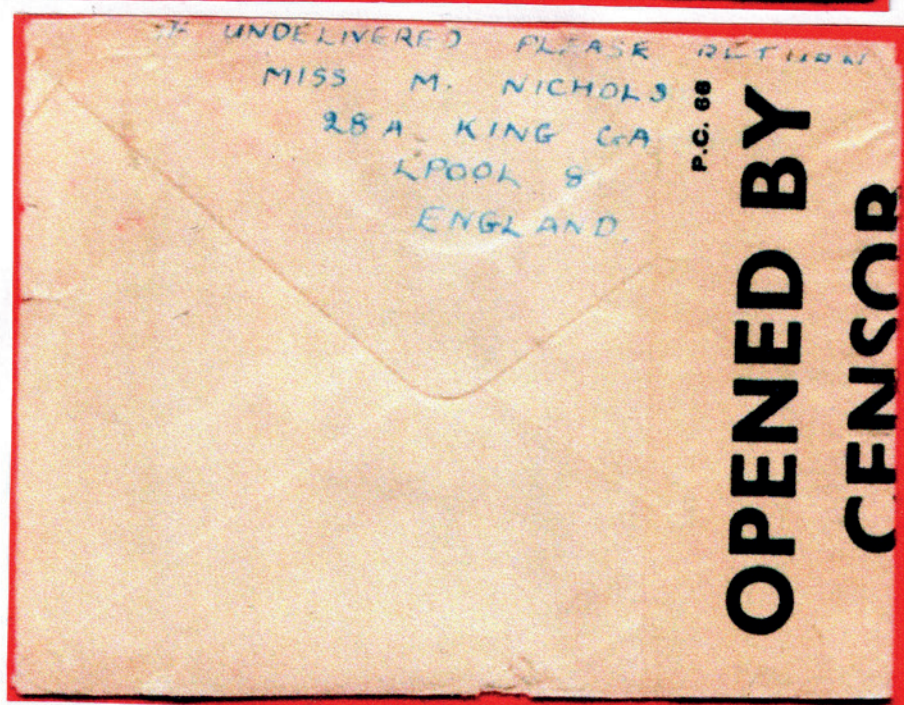 IF UNDELIVERED PLEASE RETURN
MISS M. NICHOLS
28A KING GA
LPOOL 8
ENGLAND.
P.C. 66
OPENED BY
CENSOR